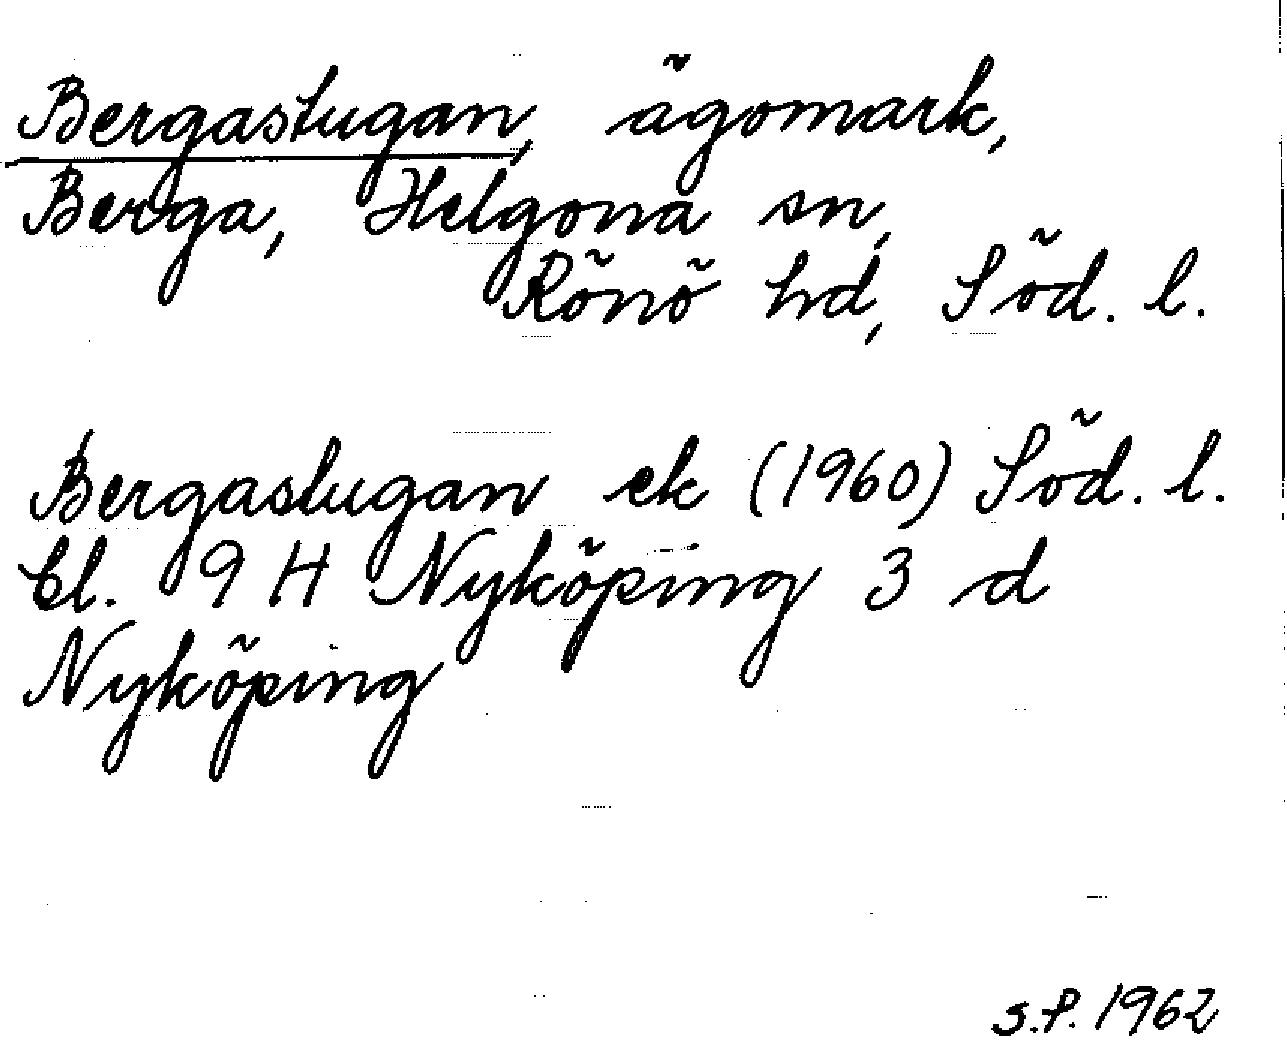 Bergastugan, ägomark,
Berga, Helgona sn,
Rönö hd, Söd. l.
Bergastugan ek (1960) Söd. l.
bl. 9 H Nyköping 3 d
Nyköping
S.P. 1962